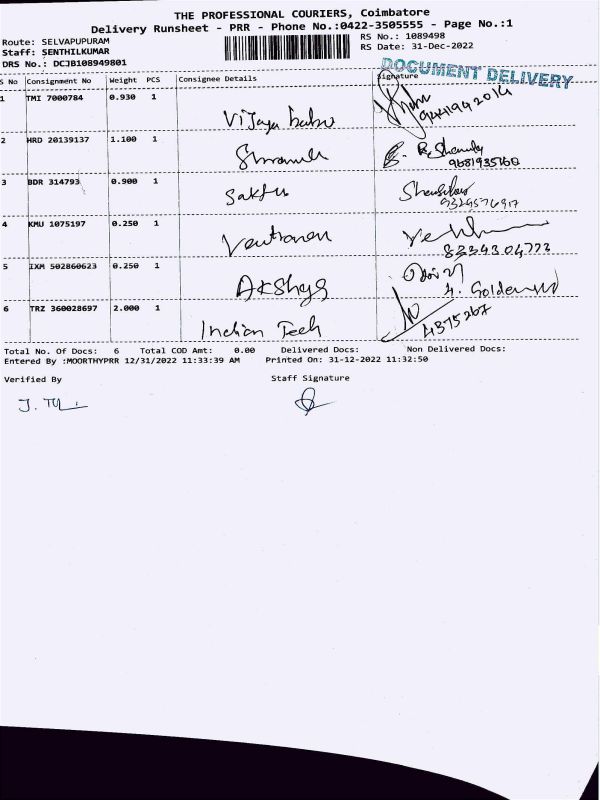 THE PROFESSIONAL COURIERS, Coimbatore
Delivery Runsheet - PRR - Phone No.:0422-3505555 - Page No.:1
Route: SELVAPUPURAM
RS No.: 1089498
Staff: SENTHILKUMAR
RS Date: 31-Dec-2022
DRS No.: DCJB108949801
DOCUMENT DELIVERY
S No Consignment No Weight PCS Consignee Details Signature
1 TMI 7000784 0.930 1 Vijaya babu
9441942014
2 HRD 20139137 1.100 1
9681935760
3 BDR 314793 0.900 1
4 KMU 1075197 0.250 1
8234304773
5 IXM 502860623 0.250 1 Akshya
6 TRZ 360028697 2.000 1 Indian Tech
4375267
Total No. Of Docs: 6 Total COD Amt: 0.00 Delivered Docs: Non Delivered Docs:
Entered By :MOORTHYPRR 12/31/2022 11:33:39 AM Printed On: 31-12-2022 11:32:50
Verified By Staff Signature